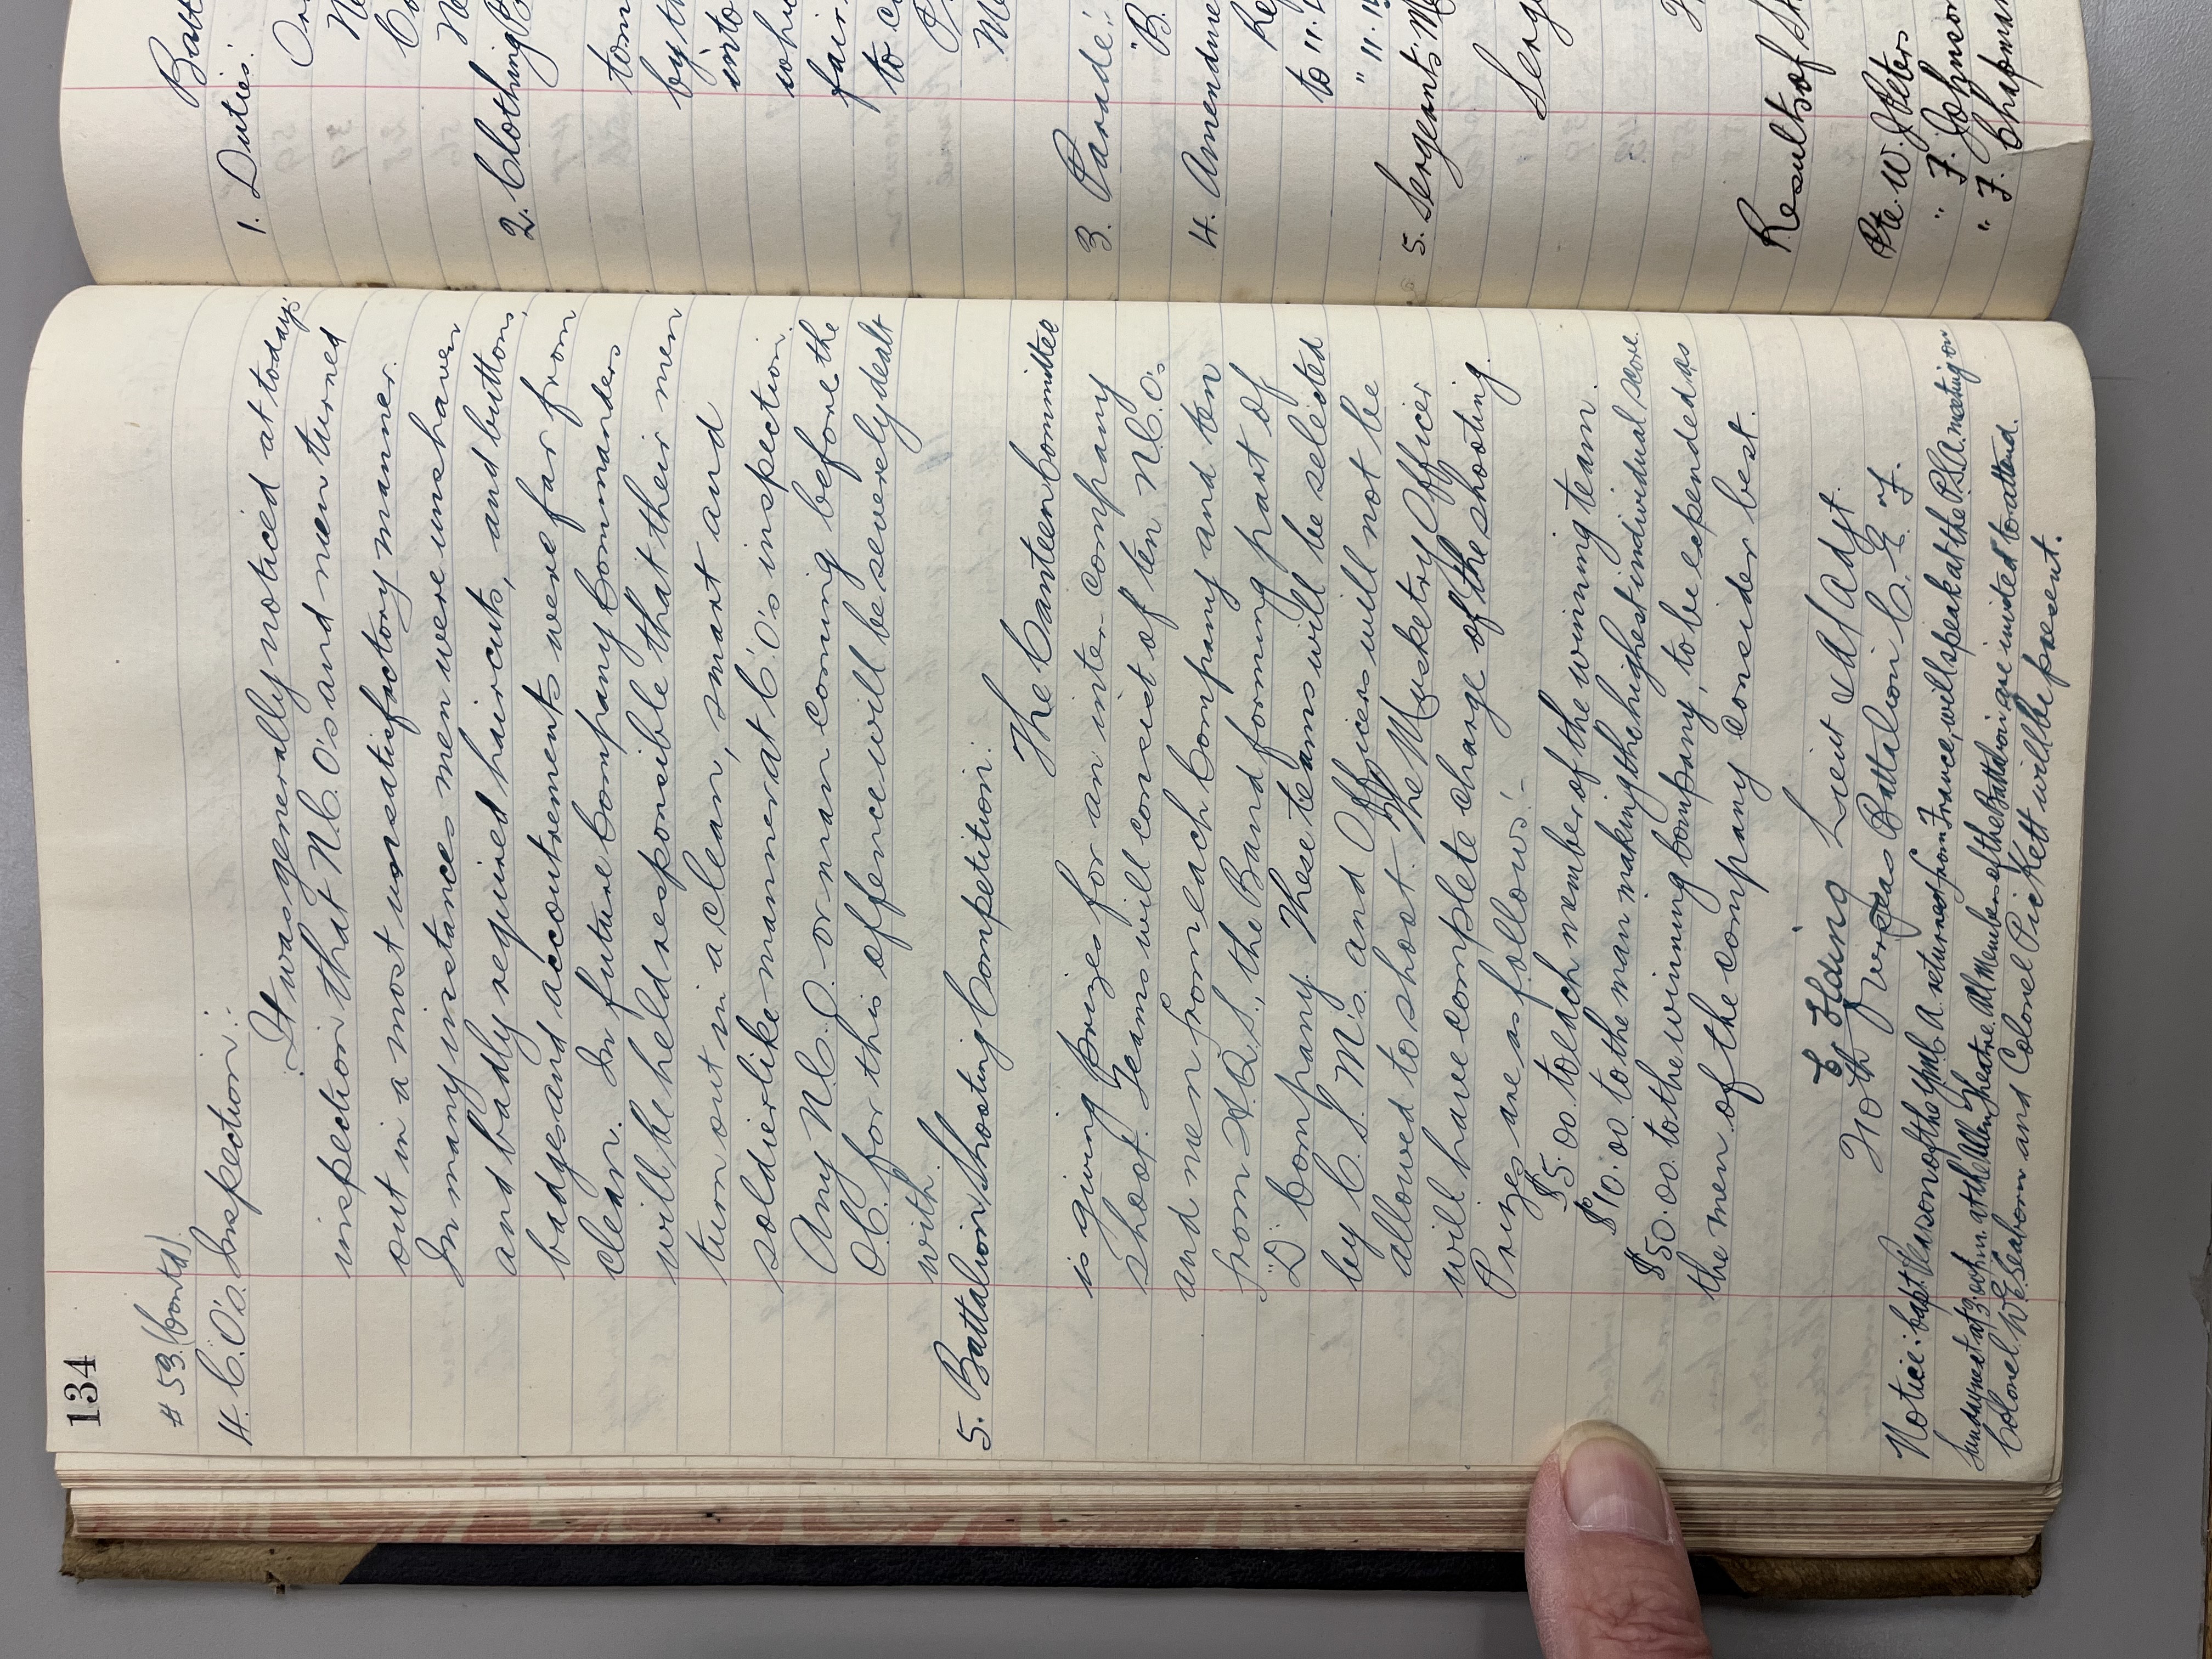 134
# 53. (Contd).
4. C.O's. Inspection:.
It was generally noticed at todays
inspection that N.C.O's and men turned
out in a most unsatisfactory manner.
In many instances men were unshaven
and badly required haircuts, and buttons,
badges and accoutrements were far from
clean. In future Company Commanders
will be held responsible that their men
turn out in a clean, smart and
soldierlike manner at C.O's inspection.
Any N.C.O. or man coming before the
O.C. for this offence will be severely dealt
with.
5. Battalion Shooting Competition:.
The Canteen Committee
is giving prizes for an inter-company
shoot. Teams will consist of ten N.C.O's
and men from each Company and ten
from H.Q.S., the Band forming part of
"D" Company. These teams will be selected
by C.S.M's. and Officers will not be
allowed to shoot. The Musketry Officer
will have complete charge of the shooting.
Prizes are as follows:-
$5.00. to each member of the winning team.
$10.00 to the man making the highest individual score.
$50.00. to the winning Company, to be expended as
the men of the company consider best.
Lieut A/Adjt.
Overseas Battalion C.E.F.
Notice:. Capt. Pearson of the Y.M.C.A. returned from France, will speak at the P.S.A. meeting on
Sunday next at 3.00 p.m. at the Allen Theatre. All Members of the Battalion are invited to attend.
Colonel W.E. Seaborn and Colonel Pickett will be present.
Batt
1. Duties:.
2. Clothing
tom
by th
into
whi
fair
to c
3. Parade:.
"B.
4. Amendme
to 11.
" 11.
5. Sergeants M
Serg
Results of Sh
Pte. W. Peters
" F. Johnson
" F. Chapman